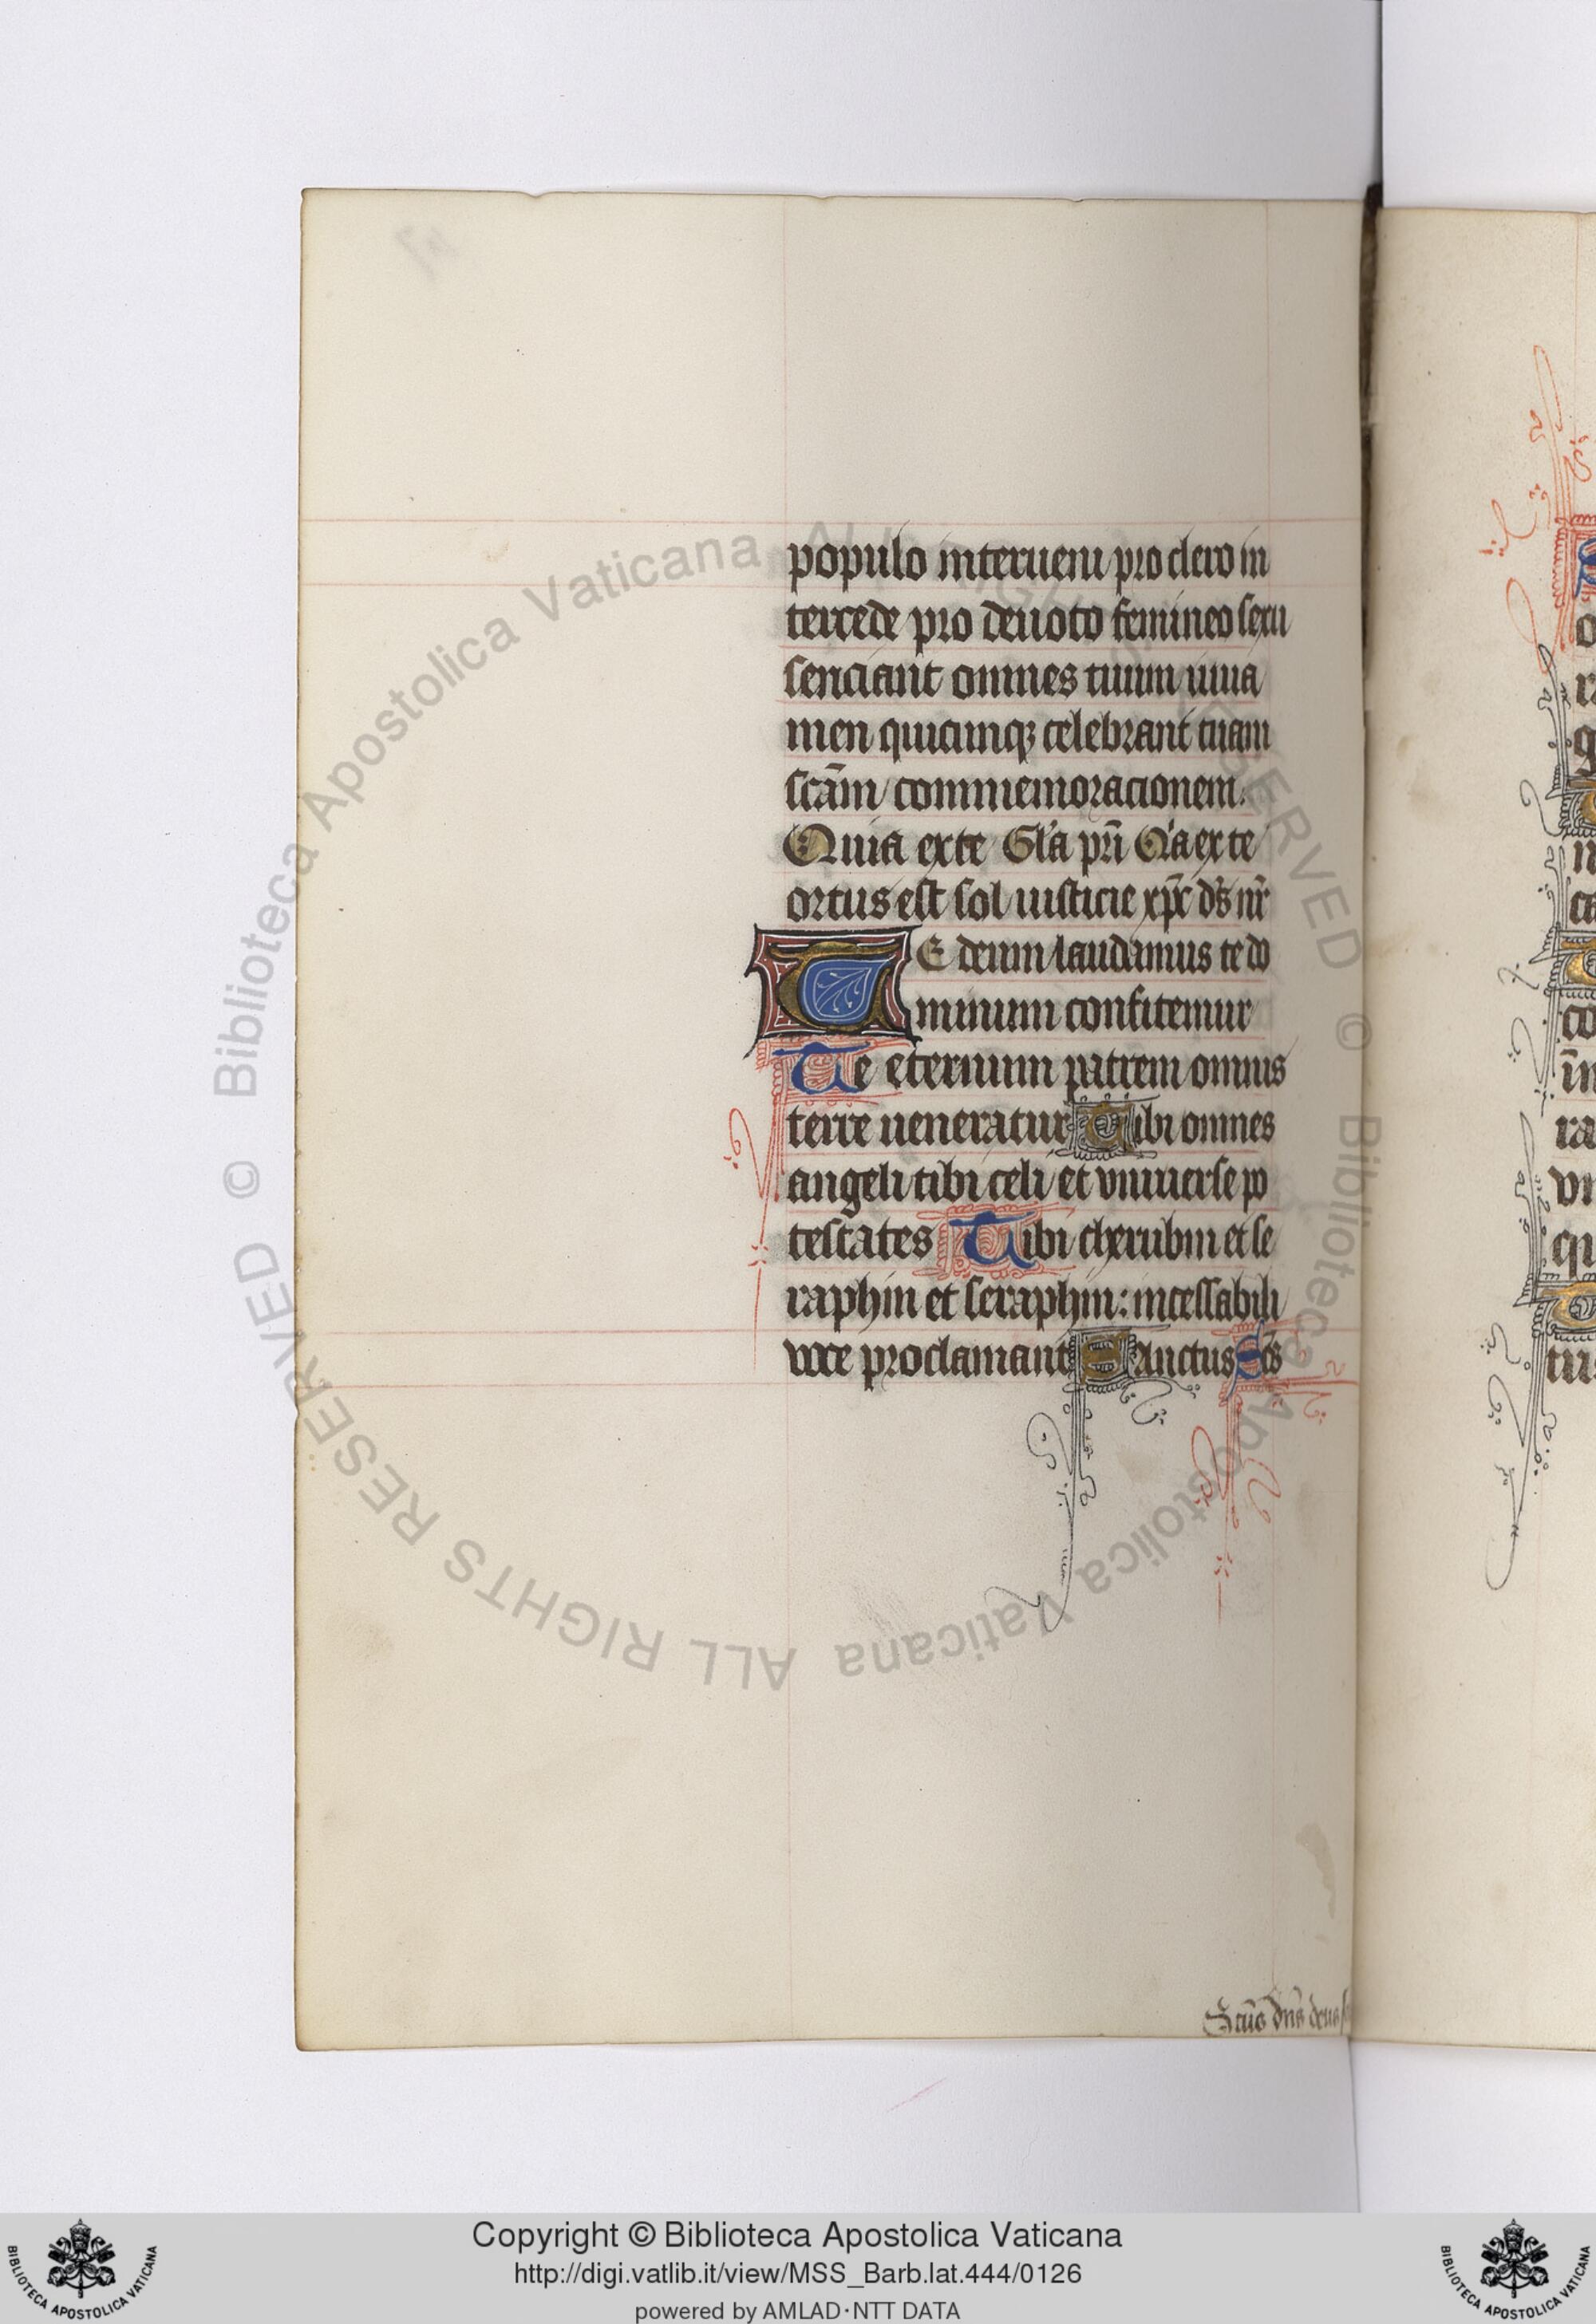 populo interueni pro clero in
tercede pro deuoto femineo sexu
senciant omnes tuum iuua
men quicumqꝫ celebrant tuam
scām commemoracionem.
Quia ex te Gl'a pr̄i Q'a ex te
ortus est sol iusticie xp̄c ds̄ nr̄
TE deum laudamus te do
minum confitemur
Te eternum patrem omnis
terre ueneratur Tibi omnes
angeli tibi celi et vniuerse po
testates Tibi cherubin et se
raphin et seraphin: incessabili
voce proclamant Sanctus Sc̄s
Sctūs dn̄s deus
© Biblioteca Apostolica Vaticana ALL RIGHTS RESERVED © Biblioteca Apostolica Vaticana ALL RIGHTS RESERVED
Copyright © Biblioteca Apostolica Vaticana
http://digi.vatlib.it/view/MSS_Barb.lat.444/0126
powered by AMLAD·NTT DATA
BIBLIOTECA APOSTOLICA VATICANA
BIBLIOTECA APOSTOLICA VATICANA